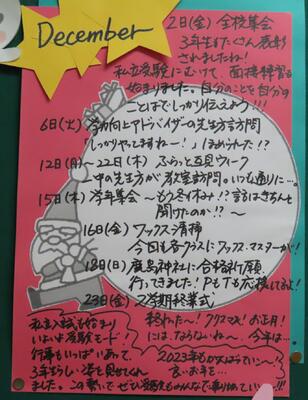 December
2日(金) 全校集会
3年生もたくさん表彰
されましたね!
私立受験にむけて、面接練習も
始まりました。自分のことを自分の
ことばでしっかり伝えよう!!!
6日(火) 学力向上アドバイザーの先生方訪問
「しっかりやってますねー!」ほめられた!?
12日(月)〜22日(木) ふらっと参見ウィーク
中の先生方が教室訪問。いつも通りに…
15日(木) 学年集会 〜もう冬休み!?話はきちんと
聞けたのか!?〜
16日(金) ワックス清掃
今回も各クラスにワックスマスターが!
18日(日) 鹿島神社に合格祈願
行ってきました!PもTも応援してるよ!
23日(金) 2学期終業式
終わった〜!クリスマス!お正月!
には、ならないね〜、今年は…
2023年もがんばっていこ〜!
良いお年を…
私立入試も始まり
いよいよ受験モード!
行事もいっぱいあって、
3年生らしい姿を見せてくれ
ました。この勢いで ぜひ受験もみんなで乗りきっていこ〜!!!